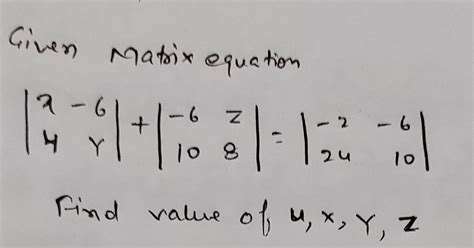 Given Matrix equation
|x -6| + |-6 z| = |-2 -6|
|4 Y| |10 8| |24 10|
Find value of, u, x, Y, z